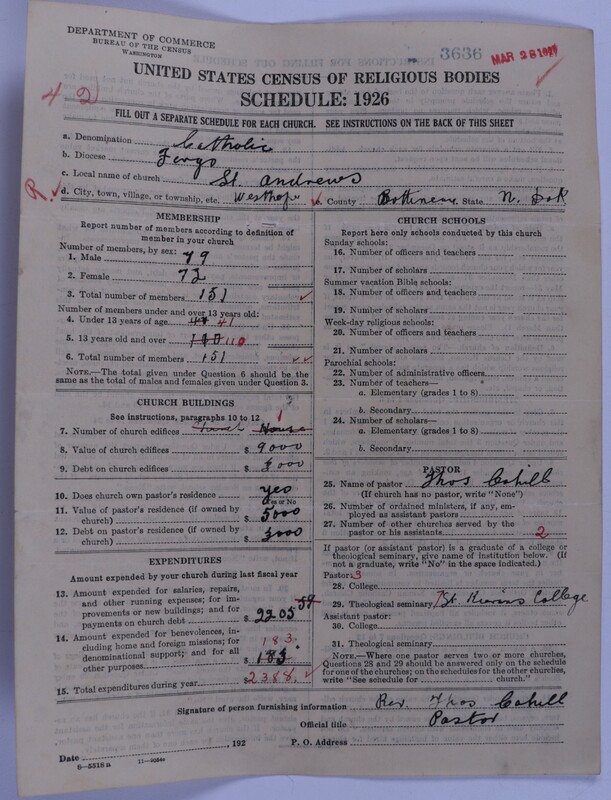 DEPARTMENT OF COMMERCE
BUREAU OF THE CENSUS
WASHINGTON
3636
MAR 28 1927
UNITED STATES CENSUS OF RELIGIOUS BODIES
SCHEDULE: 1926
4 2
FILL OUT A SEPARATE SCHEDULE FOR EACH CHURCH. SEE INSTRUCTIONS ON THE BACK OF THIS SHEET
a. Denomination Catholic
b. Diocese Fargo
c. Local name of church St. Andrews
R. d. City, town, village, or township, etc. Westhope County Bottineau State N. Dak
MEMBERSHIP
Report number of members according to definition of member in your church
Number of members, by sex:
1. Male 79
2. Female 72
3. Total number of members 151
Number of members under and over 13 years old:
4. Under 13 years of age 41
5. 13 years old and over 110
6. Total number of members 151
NOTE.—The total given under Question 6 should be the
same as the total of males and females given under Question 3.
CHURCH BUILDINGS
See instructions, paragraphs 10 to 12
7. Number of church edifices 1
8. Value of church edifices $ 9000
9. Debt on church edifices $
10. Does church own pastor's residence yes
(Yes or No)
11. Value of pastor's residence (if owned by
church) $ 5000
12. Debt on pastor's residence (if owned by
church) $ 3000
EXPENDITURES
Amount expended by your church during last fiscal year
13. Amount expended for salaries, repairs,
and other running expenses; for im-
provements or new buildings; and for
payments on church debt $ 2205 59
14. Amount expended for benevolences, in-
cluding home and foreign missions; for
denominational support; and for all
other purposes $ 183.
183.
15. Total expenditures during year $ 2388.
CHURCH SCHOOLS
Report here only schools conducted by this church
Sunday schools:
16. Number of officers and teachers
17. Number of scholars
Summer vacation Bible schools:
18. Number of officers and teachers
19. Number of scholars
Week-day religious schools:
20. Number of officers and teachers
21. Number of scholars
Parochial schools:
22. Number of administrative officers
23. Number of teachers—
a. Elementary (grades 1 to 8)
b. Secondary
24. Number of scholars—
a. Elementary (grades 1 to 8)
b. Secondary
PASTOR
25. Name of pastor Thos Cahill
(If church has no pastor, write "None")
26. Number of ordained ministers, if any, em-
ployed as assistant pastors
27. Number of other churches served by the
pastor or his assistants 2
If pastor (or assistant pastor) is a graduate of a college or
theological seminary, give name of institution below. (If
not a graduate, write "No" in the space indicated.)
Pastor: 3
28. College
29. Theological seminary St. Kierans College
Assistant pastor:
30. College
31. Theological seminary
NOTE.—Where one pastor serves two or more churches,
Questions 28 and 29 should be answered only on the schedule
for one of the churches; on the schedules for the other churches,
write "See schedule for church."
Signature of person furnishing information Rev. Thos Cahill
Official title Pastor
Date , 192 P. O. Address
8—5518a